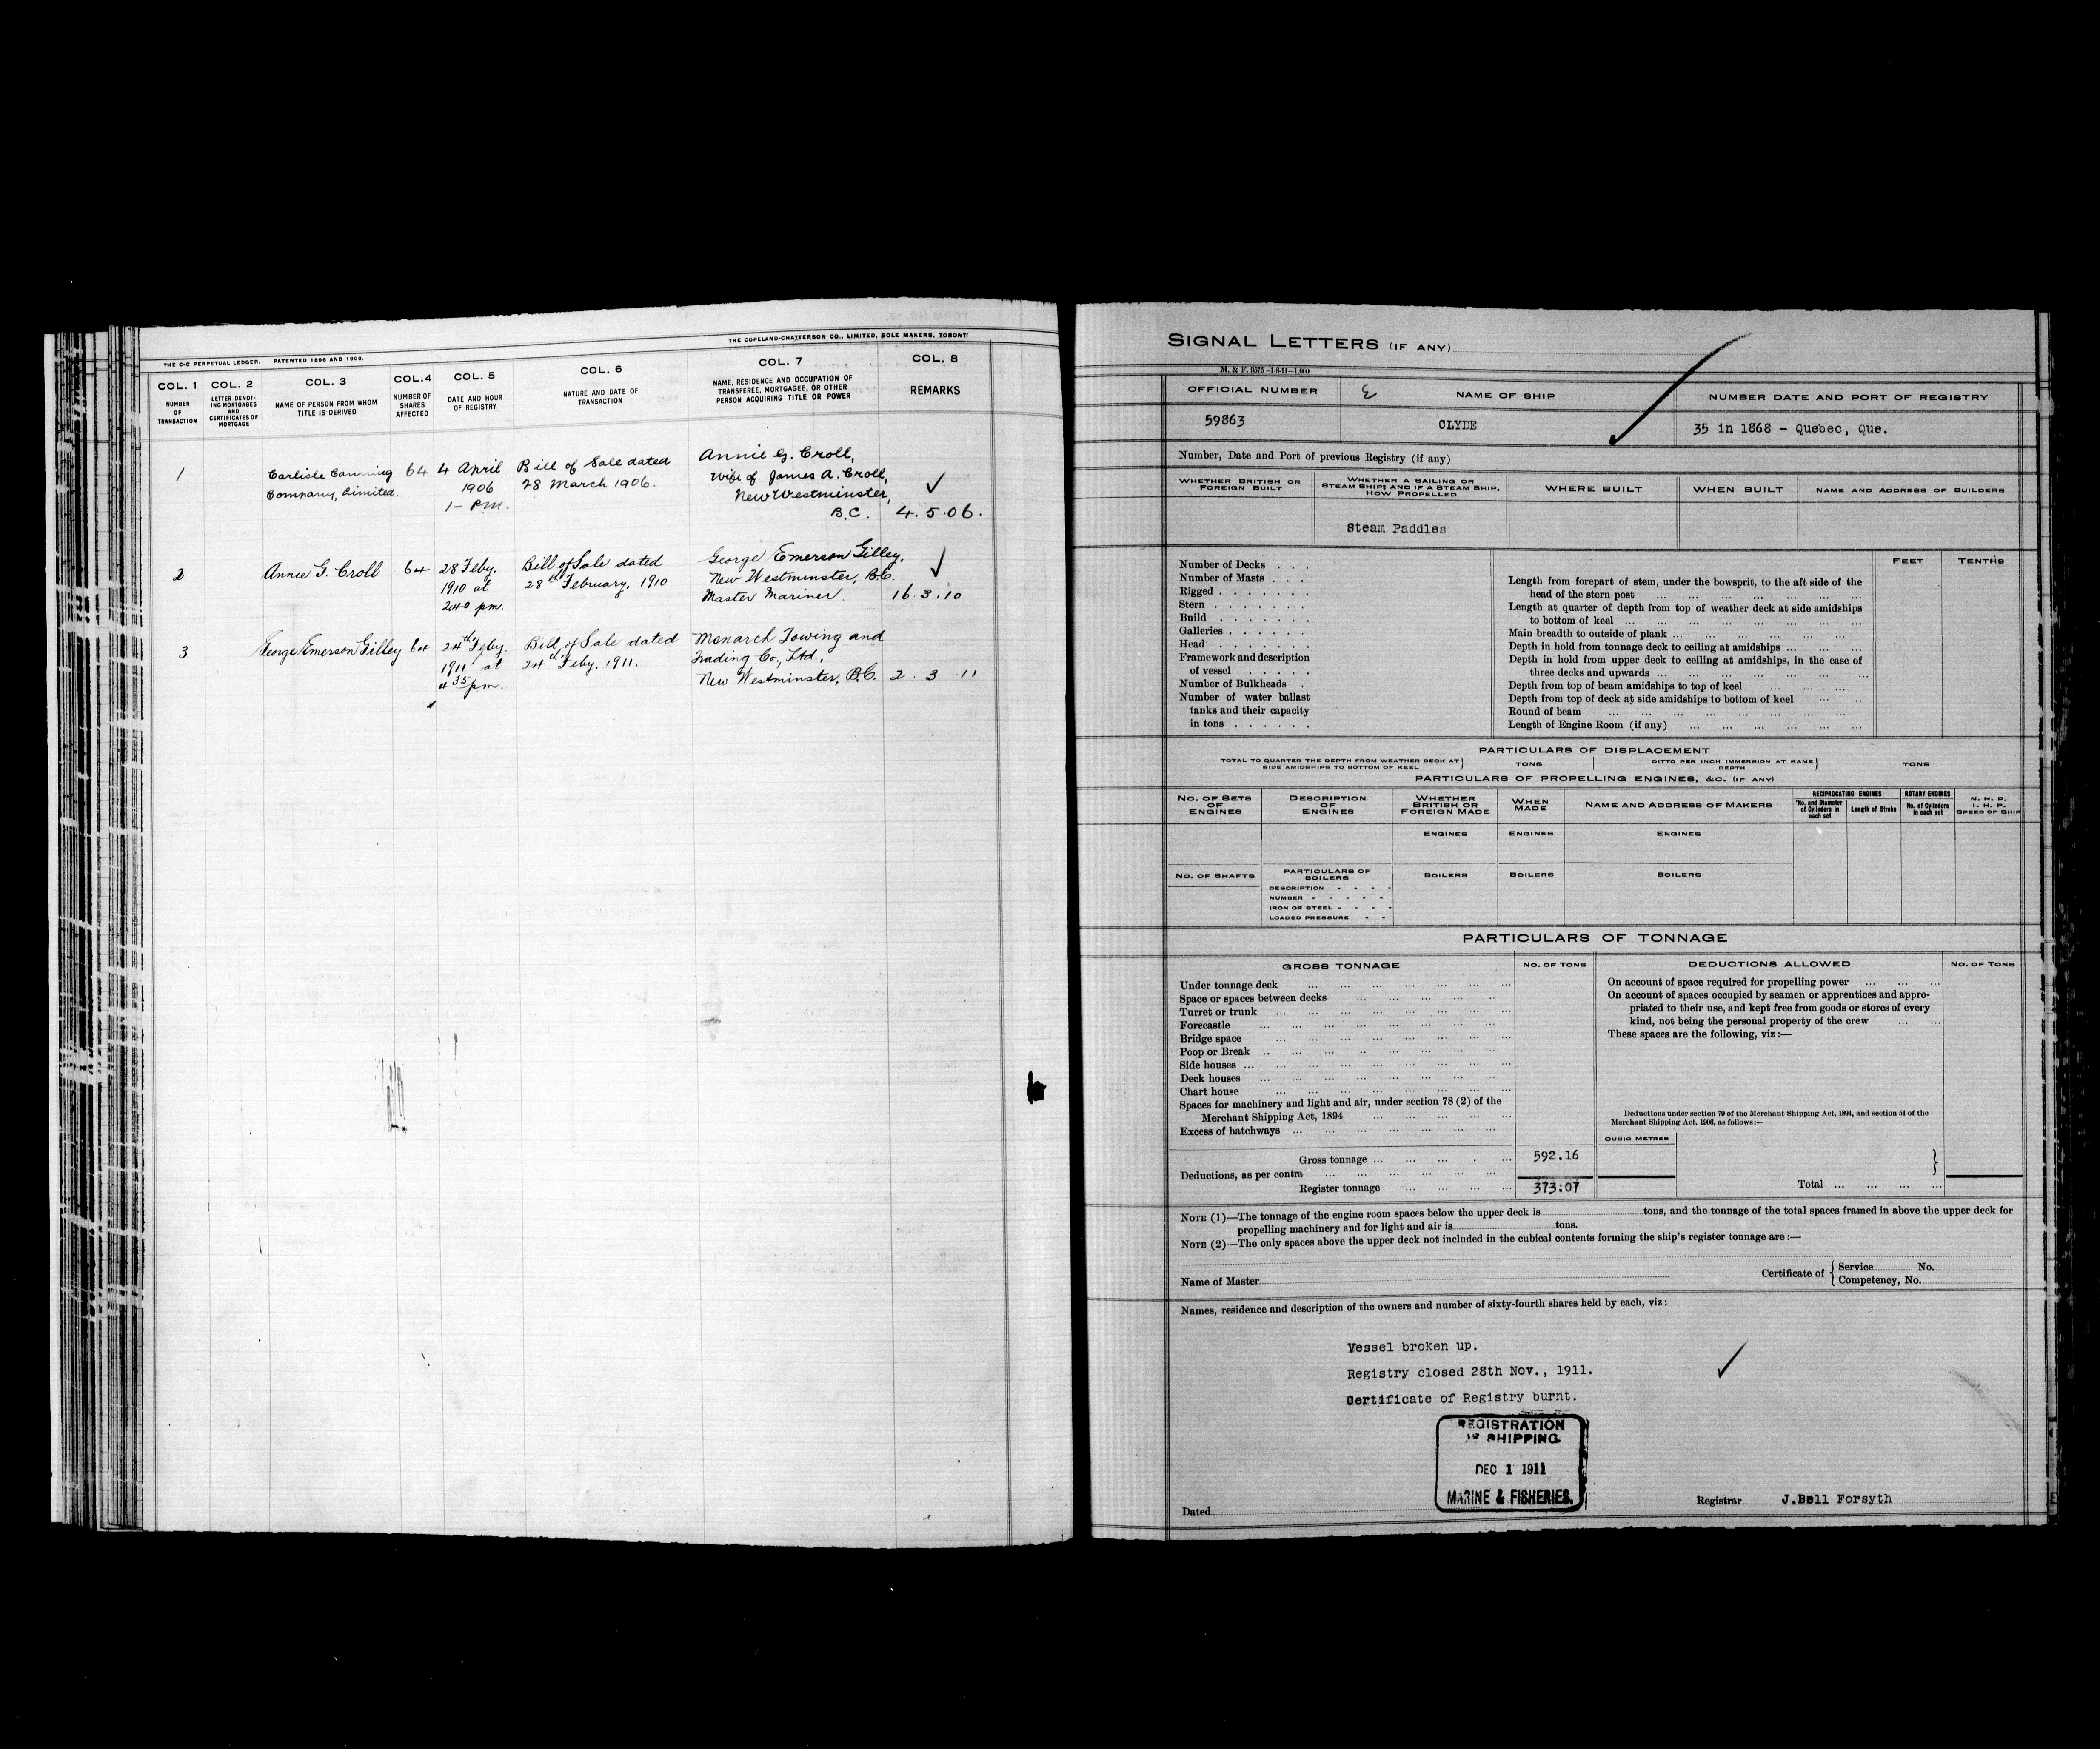 THE C-C PERPETUAL LEDGER. PATENTED 1896 AND 1900.
THE COPELAND-CHATTERSON CO., LIMITED, SOLE MAKERS, TORONTO
COL. 1
NUMBER
OF
TRANSACTION
COL. 2
LETTER DENOT-
ING MORTGAGES
AND
CERTIFICATES OF
MORTGAGE
COL. 3
NAME OF PERSON FROM WHOM
TITLE IS DERIVED
COL.4
NUMBER OF
SHARES
AFFECTED
COL. 5
DATE AND HOUR
OF REGISTRY
COL. 6
NATURE AND DATE OF
TRANSACTION
COL. 7
NAME, RESIDENCE AND OCCUPATION OF
TRANSFEREE, MORTGAGEE, OR OTHER
PERSON ACQUIRING TITLE OR POWER
COL. 8
REMARKS
1
Carlisle Canning
Company, Limited.
64
4 April
1906
1- P.M.
Bill of Sale dated
28 March 1906.
Annie G. Croll,
Wife of James A. Croll,
New Westminster,
B.C.
4.5.06.
2
Annie G. Croll
64
28 Feby.
1910 at
2.40 pm.
Bill of Sale dated
28th February, 1910
George Emerson Gilley,
New Westminster, B.C.
Master Mariner.
16.3.10
3
George Emerson Gilley
64
24th Feby.
1911 at
4 35 pm.
Bill of Sale dated
24th Feby. 1911.
Monarch Towing and
Trading Co., Ltd.,
New Westminster, B.C.
2. 3 .11
SIGNAL LETTERS (IF ANY)
M. & F. 9575-1-8-11-1,000
OFFICIAL NUMBER
NAME OF SHIP
NUMBER DATE AND PORT OF REGISTRY
59863
CLYDE
35 in 1868 - Quebec, Que.
Number, Date and Port of previous Registry (if any)
WHETHER BRITISH OR
FOREIGN BUILT
WHETHER A SAILING OR
STEAM SHIP; AND IF A STEAM SHIP,
HOW PROPELLED
WHERE BUILT
WHEN BUILT
NAME AND ADDRESS OF BUILDERS
Steam Paddles
Number of Decks . . .
Number of Masts . . .
Rigged . . . . . . .
Stern . . . . . . .
Build . . . . . . .
Galleries . . . . . .
Head . . . . . . .
Framework and description
of vessel . . . . .
Number of Bulkheads .
Number of water ballast
tanks and their capacity
in tons . . . . . .
FEET
TENTHS
Length from forepart of stem, under the bowsprit, to the aft side of the
head of the stern post
Length at quarter of depth from top of weather deck at side amidships
to bottom of keel
Main breadth to outside of plank
Depth in hold from tonnage deck to ceiling at amidships
Depth in hold from upper deck to ceiling at amidships, in the case of
three decks and upwards
Depth from top of beam amidships to top of keel
Depth from top of deck at side amidships to bottom of keel
Round of beam
Length of Engine Room (if any)
PARTICULARS OF DISPLACEMENT
TOTAL TO QUARTER THE DEPTH FROM WEATHER DECK AT
SIDE AMIDSHIPS TO BOTTOM OF KEEL
TONS
DITTO PER INCH IMMERSION AT SAME
DEPTH
TONS
PARTICULARS OF PROPELLING ENGINES, &C. (IF ANY)
NO. OF SETS
OF
ENGINES
DESCRIPTION
OF
ENGINES
WHETHER
BRITISH OR
FOREIGN MADE
WHEN
MADE
NAME AND ADDRESS OF MAKERS
RECIPROCATING ENGINES
No. and Diameter
of Cylinders in
each set
Length of Stroke
ROTARY ENGINES
No. of Cylinders
in each set
N. H. P.
I. H. P.
SPEED OF SHIP
ENGINES
ENGINES
ENGINES
NO. OF SHAFTS
PARTICULARS OF
BOILERS
DESCRIPTION - - - -
NUMBER - - - - -
IRON OR STEEL - - - -
LOADED PRESSURE - -
BOILERS
BOILERS
BOILERS
PARTICULARS OF TONNAGE
GROSS TONNAGE
NO. OF TONS
DEDUCTIONS ALLOWED
NO. OF TONS
Under tonnage deck
Space or spaces between decks
Turret or trunk
Forecastle
Bridge space
Poop or Break
Side houses
Deck houses
Chart house
Spaces for machinery and light and air, under section 78 (2) of the
Merchant Shipping Act, 1894
Excess of hatchways
On account of space required for propelling power
On account of spaces occupied by seamen or apprentices and appro-
priated to their use, and kept free from goods or stores of every
kind, not being the personal property of the crew
These spaces are the following, viz:—
Deductions under section 79 of the Merchant Shipping Act, 1894, and section 54 of the
Merchant Shipping Act, 1906, as follows:—
CUBIC METRES
Gross tonnage
592.16
Deductions, as per contra
Register tonnage
373.07
Total
NOTE (1)—The tonnage of the engine room spaces below the upper deck is tons, and the tonnage of the total spaces framed in above the upper deck for
propelling machinery and for light and air is tons.
NOTE (2)—The only spaces above the upper deck not included in the cubical contents forming the ship's register tonnage are:—
Name of Master
Certificate of
Service No.
Competency, No.
Names, residence and description of the owners and number of sixty-fourth shares held by each, viz:
Vessel broken up.
Registry closed 28th Nov., 1911.
Certificate of Registry burnt.
REGISTRATION
OF SHIPPING.
DEC 1 1911
MARINE & FISHERIES.
Dated
Registrar J.Bell Forsyth